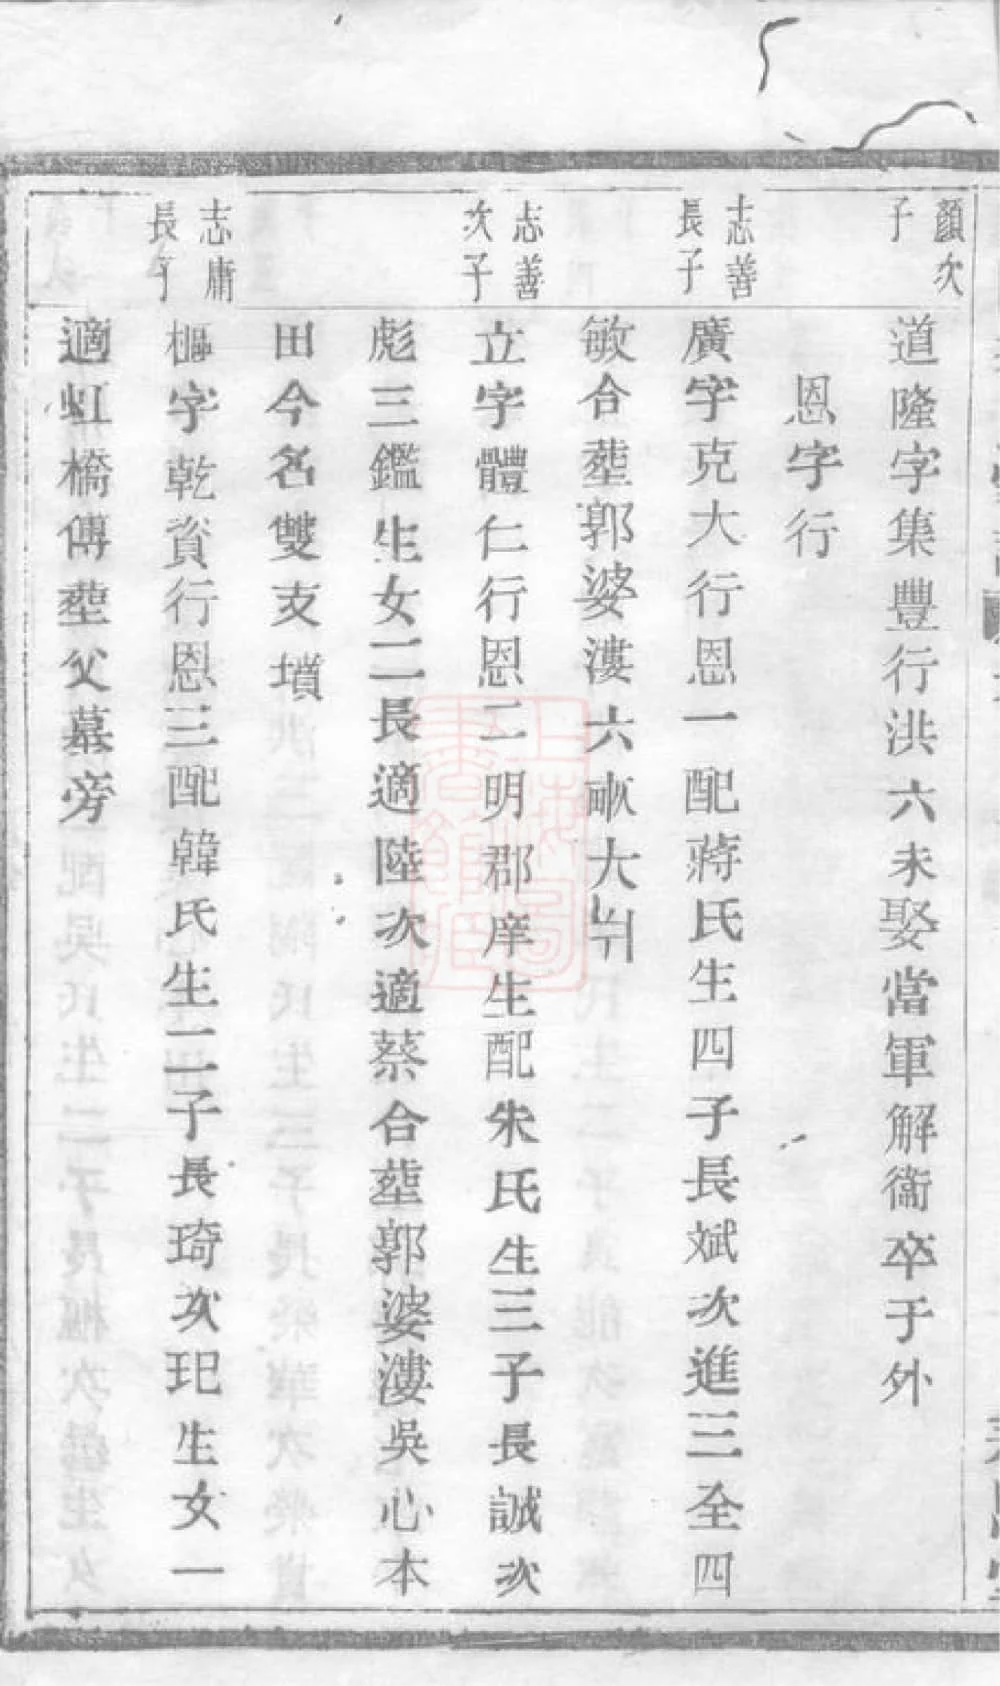 顏次子
道隆字集豐行洪六未娶當軍解衛卒于外
恩字行
志善長子
廣字克大行恩一配蔣氏生四子長斌次進三全四
敏合塟郭婆漊六畝大
志善次子
立字體仁行恩二明郡庠生配朱氏生三子長誠次
彪三鑑生女二長適陸次適蔡合塟郭婆漊吳心本
田今名雙支墳
志庸長子
樞字乾資行恩三配韓氏生二子長琦次玘生女一
適虹橋傅塟父墓旁